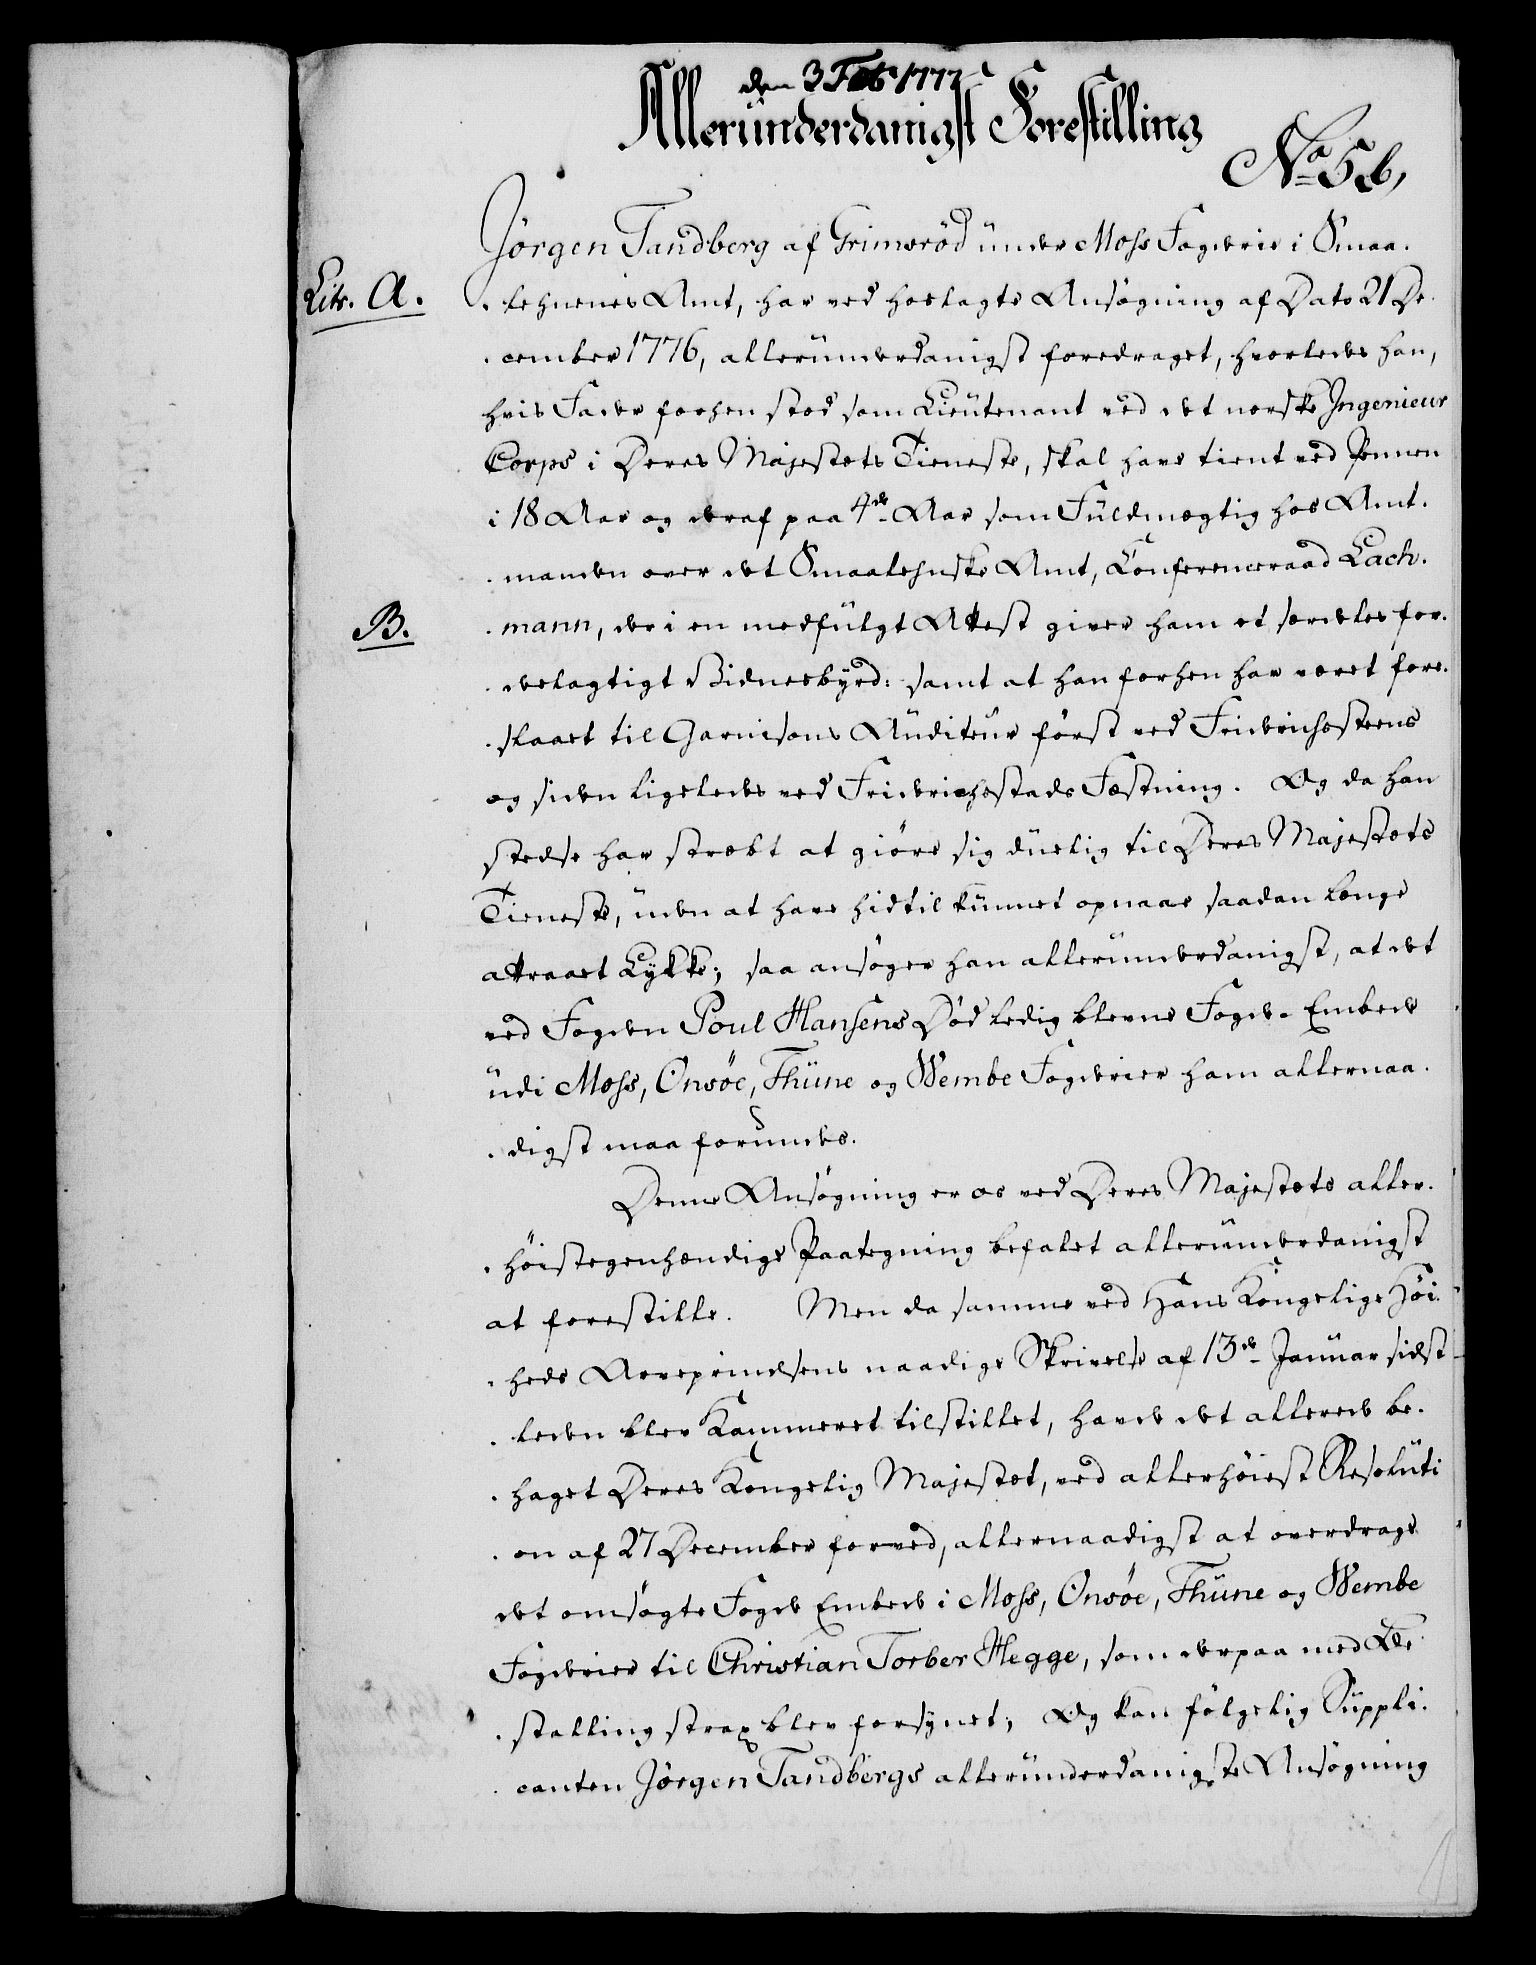 den 3 Feb 1777
Allerunderdanigst Forestilling
No 56,
Jörgen Tandberg af Grimsröd under Moss Fogderie i Smaa-
Litr. A.
-lehnenes Amt, har ved hoslagte Ansögning af Dato 21 De-
-cember 1776, allerunderdanigst foredraget, hvorledes han,
hvis Fader forhen stod som Lieutenant ved det norske Ingenieur
Corps i Deres Majestæts Tieneste, skal have tient ved Pennen
i 18 Aar og deraf paa 4de Aar som Fuldmægtig hos Amt-
-manden over det Smaalehnske Amt, Conferenceraad Lach-
B.
-mann, der i en medfulgt Attest giver ham et særdeles for-
-delagtigt Vidnesbyrd: samt at han forhen har været fore-
-slaaet til Garnisons Auditeur först ved Friderichsteens
og siden ligeledes ved Friderichstads Fæstning. Og da han
stedse har stræbt at giöre sig duelig til Deres Majestæts
Tieneste, uden at have hidtil kunnet opnaae saadan længe
attraaet Lykke; saa ansöger han allerunderdanigst, at det
ved Fogden Poul Hansens Död ledig blevne Fogde-Embede
udi Moss, Onsöe, Thune og Wembe Fogderier ham allernaa-
-digst maa forundes.
Denne Ansögning er os ved Deres Majestæts aller-
-höistegenhændige Paategning befalet allerunderdanigst
at forestille. Men da samme ved Hans Kongelige Höi-
-heds Arveprindsens naadige Skrivelse af 13de Januar sidst-
-leden blev Kammeret tilstillet, havde det allerede be-
-haget Deres Kongelig Majestæt, ved allerhöiest Resoluti-
-on af 27 December forved, allernaadigst at overdrage
det omsögte Fogde Embede i Moss, Onsöe, Thune og Wembe
Fogderier til Christian Torber Hegge, som derpaa med Be-
-stalling strax blev forsynet; Og kan fölgelig Suppli-
-canten Jörgen Tandbergs allerunderdanigste Ansögning